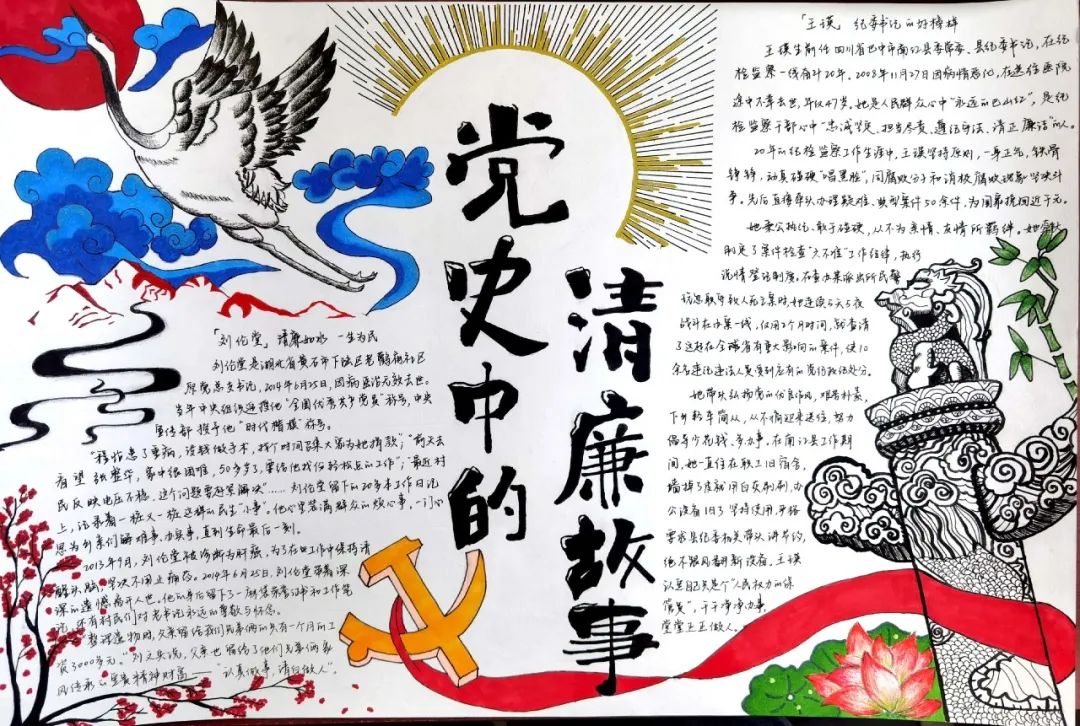 党史中的
清廉故事
「刘伦堂」清廉如水 一生为民
刘伦堂是湖北省黄石市下陆区老鹳庙社区
原党总支书记,2014年6月25日,因病医治无效去世。
当年中央组织部追授他"全国优秀共产党员"称号,中央
宣传部授予他"时代楷模"称号。
患了重病,没钱做手术,找个时间召集大家为她捐款";"前天去
看望张 ,家中很困难,50多岁了,要给他找份轻松点的工作";"最近村
民反映电压不稳,这个问题要赶紧解决"……刘伦堂留下的20多本工作日记
上,记录着一桩又一桩这样的民生"小事"。他心里装满群众的烦心事,一门心
思为乡亲们解难事、办实事,直到生命最后一刻。
2013年9月,刘伦堂被诊断为肝癌,为了在工作中保持清
醒头脑,坚决不用止痛药。2014年6月25日,刘伦堂带着深
深的遗憾离开人世。他的身后留下了一 荣誉证书和工作笔
记,还有村民们对老书记永远的尊敬与怀念。
整理遗物时,父亲留给我们兄弟俩的只有一个月的工
资3000多元。"刘 说,父亲也留给了他们兄弟俩家
风传承的宝贵精神财富——"认真做事,清白做人"。
「王瑛」纪委书记的好榜样
王瑛生前任四川省巴中市南江县委常委、县纪委书记,在纪
检监察一线奋斗20年。2008年11月27日因病情恶化,在送往医院
途中不幸去世,年仅47岁。她是人民群众心中"永远的巴山红",是纪
检监察干部心中"忠诚坚定、担当尽责、遵纪守法、清正廉洁"的人。
20年的纪检监察工作生涯中,王瑛坚持原则,一身正气,铁骨
铮铮,动真碰硬"唱黑脸",同腐败分子和消极腐败现象坚决斗
争。先后直接牵头办理疑难、典型案件50余件,为国家挽回近千元。
她秉公执纪、敢于碰硬,从不为亲情、友情所羁绊。她牵头
制定了案件检查"六不准"工作纪律,执行
说情登记制度。在查办某派出所民警
致人死亡案时,她连续5天5夜
战斗在办案一线,仅用2个月时间,就查清
了这起在全 省有重大影响的案件,使10
余名违纪违法人员受到应有的党纪政纪处分。
她带头弘扬党的优良作风,艰苦朴素,
下乡轻车简从,从不搞迎来送往,努力
倡导少花钱、多办事,在南江县工作期
间,她一直住在职工旧宿舍,
墙掉了皮就用白灰刷刷,办
公设备旧了坚持使用,严格
要求县纪委机关带头讲节约,
绝不跟风 新设施。王瑛
认真自己只是个"人民权力的保
管员",干干净净办事,
堂堂正正做人。